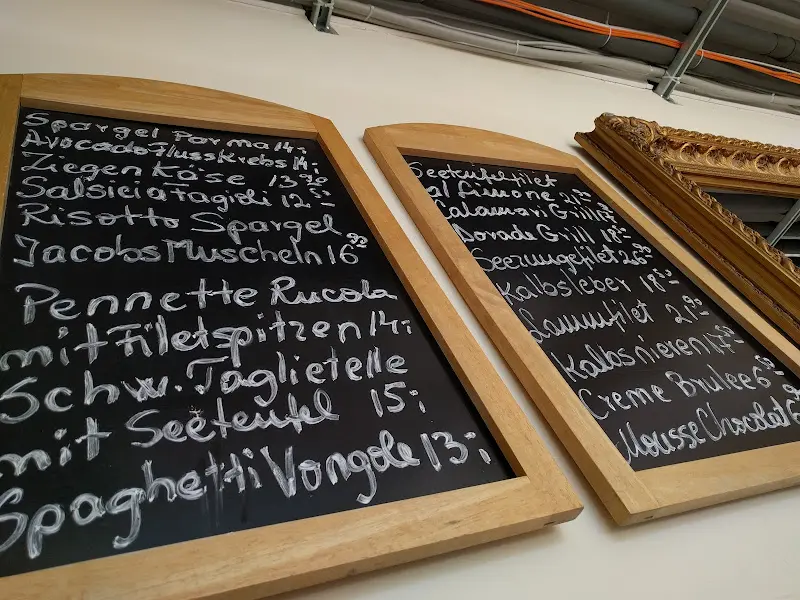 Spargel Parma 14,-
Avocado Flusskrebs 14,-
Ziegen Käse 13 90
Salsicia Fagioli 12 50
Risotto Spargel
Jacobs Muscheln 16 90
Pennette Rucola
mit Filetspitzen 14,-
Schw. Taglietelle
mit Seeteufel 15,-
Spaghetti Vongole 13,-
Seeteufelfilet
al Limone 21 90
Calamari Grill 17
Dorade Grill 18 50
Seezungefilet 26 90
Kalbsleber 18 50
Lammfilet 21 90
Kalbsnieren 17 50
Creme Brulee 6 50
Mousse Chocolat 6 90